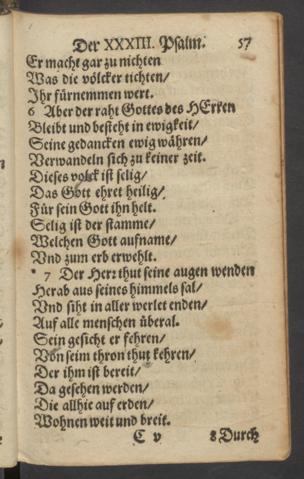 Der XXXIII. Psalm. 57
Er macht gar zu nichten
Was die völcker tichten/
Ihr fürnemmen wert.
6 Aber der raht Gottes des HErren
Bleibt und besteht in ewigkeit/
Seine gedancken ewig währen/
Verwandeln sich zu keiner zeit.
Dieses volck ist selig/
Das Gott ehret heilig/
Für sein Gott ihn helt.
Selig ist der stamme/
Welchen Gott aufname/
Vnd zum erb erwehlt.
* 7 Der Herr thut seine augen wenden
Herab aus seines himmels sal/
Vnd siht in aller werlet enden/
Auf alle menschen überal.
Sein gesicht er kehren/
Von seim thron thut kehren/
Der ihm ist bereit/
Da gesehen werden/
Die allhie auf erden/
Wohnen weit und breit.
C v 8 Durch